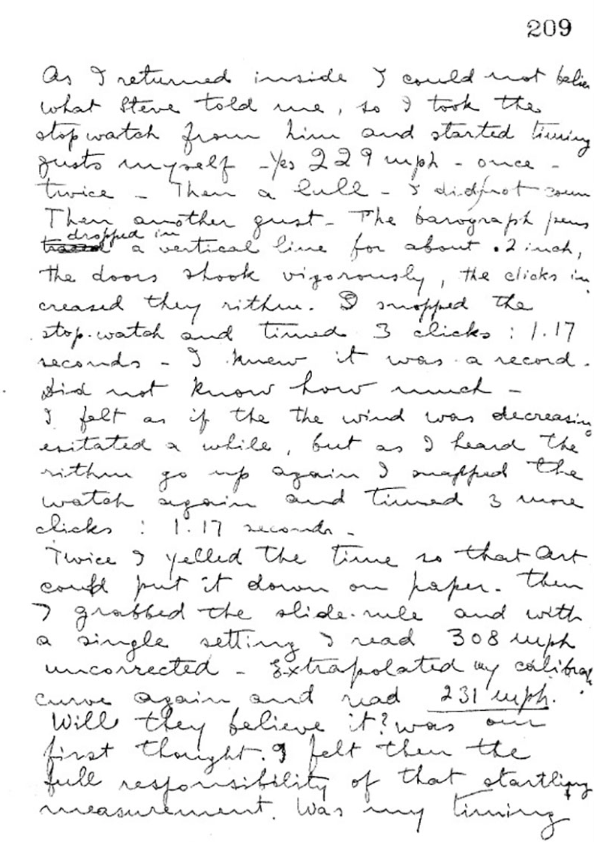 209
As I returned inside I could not belie
what Steve told me, so I took the
stop watch from him and started timing
gusts myself - Yes 229 mph - once -
twice - Then a lull - I did not
Then another gust - The barograph pens
dropped in
a vertical line for about .2 inch,
the doors shook vigorously, the clicks in
creased they rithm. I snapped the
stop-watch and timed 3 clicks : 1.17
seconds - I knew it was a record.
Did not know how much -
I felt as if the the wind was decreasing
esitated a while, but as I heard the
rithm go up again I snapped the
watch again and timed 3 more
clicks : 1.17 seconds -
Twice I yelled the time so that Art
could put it down on paper. Then
I grabbed the slide-rule and with
a single setting I read 308 mph
uncorrected - Extrapolated my calibra
curve again and read 231 mph.
Will they believe it? was our
first thought. I felt then the
full responsibility of that startling
measurement. Was my timing